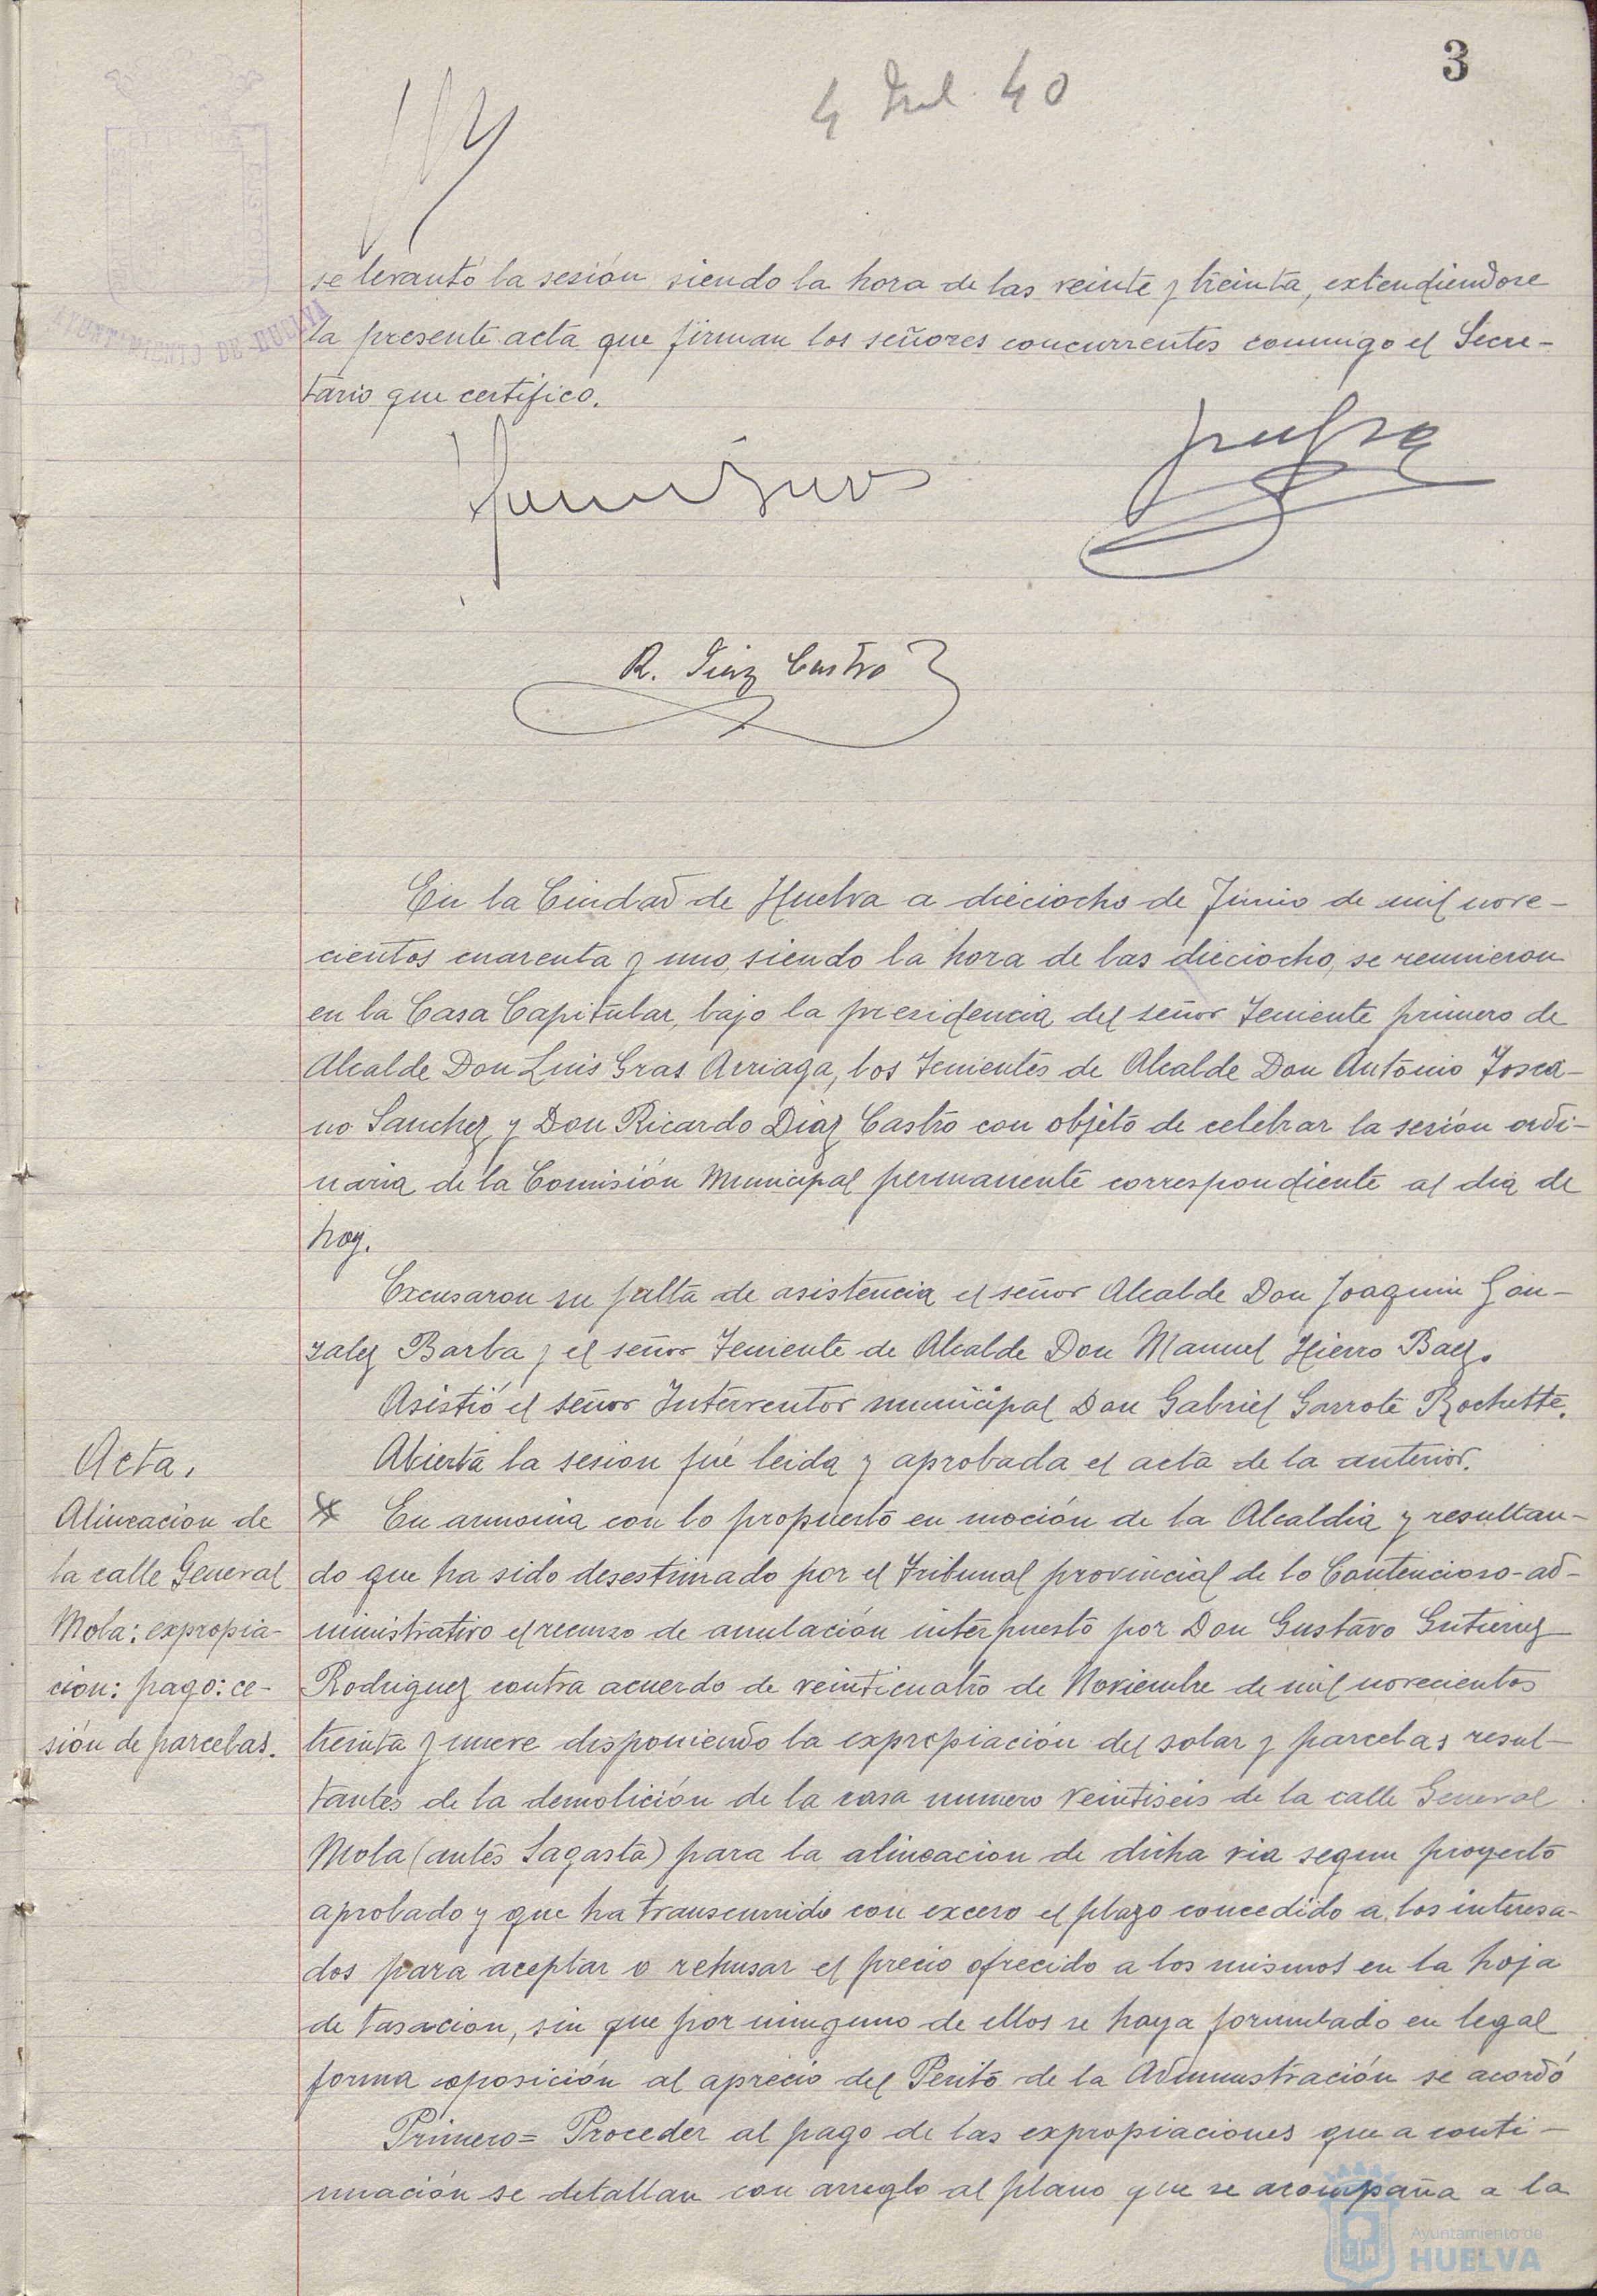 3
4 Jul 40
AYUNTAMIENTO DE HUELVA
se levantó la sesión siendo la hora de las veinte y treinta, extendiendose
la presente acta que firman los señores concurrentes conmigo el Secre-
tario que certifico.
R. Diaz Castro
En la Ciudad de Huelva a dieciocho de Junio de mil nove-
cientos cuarenta y uno, siendo la hora de las dieciocho, se reunieron
en la Casa Capitular, bajo la presidencia del señor Teniente primero de
Alcalde Don Luis Gras Arriaga, los Tenientes de Alcalde Don Antonio Tosca-
no Sanchez y Don Ricardo Diaz Castro con objeto de celebrar la sesión ordi-
naria de la Comisión Municipal permanente correspondiente al dia de
hoy.
Excusaron su falta de asistencia el señor Alcalde Don Joaquin Gon-
zalez Barba y el señor Teniente de Alcalde Don Manuel Hierro Baez.
Asistió el señor Interventor municipal Don Gabriel Garrote Rochette.
Acta.
Abierta la sesion fué leida y aprobada el acta de la anterior.
Alineacion de
la calle General
Mola: expropia-
cion: pago: ce-
sión de parcelas.
En armonia con lo propuesto en moción de la Alcaldia y resultan-
do que ha sido desestimado por el Tribunal provincial de lo Contencioso-ad-
ministrativo el recurso de anulación interpuesto por Don Gustavo Gutierrez
Rodriguez contra acuerdo de veinticuatro de Noviembre de mil novecientos
treinta y nueve disponiendo la expropiación del solar y parcelas resul-
tantes de la demolición de la casa numero veintiseis de la calle General
Mola (antes Sagasta) para la alineacion de dicha via segun proyecto
aprobado y que ha transcurrido con exceso el plazo concedido a los interesa-
dos para aceptar o rehusar el precio ofrecido a los mismos en la hoja
de tasacion, sin que por ninguno de ellos se haya formulado en legal
forma oposición al aprecio del Perito de la Administración se acordó
Primero= Proceder al pago de las expropiaciones que a conti-
nuación se detallan con arreglo al plano que se acompaña a la
Ayuntamiento de
HUELVA